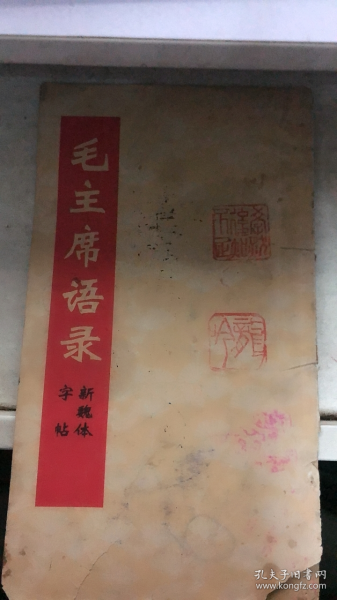 毛主席语录
新魏体
字帖
孔夫子旧书网
www.kongfz.com